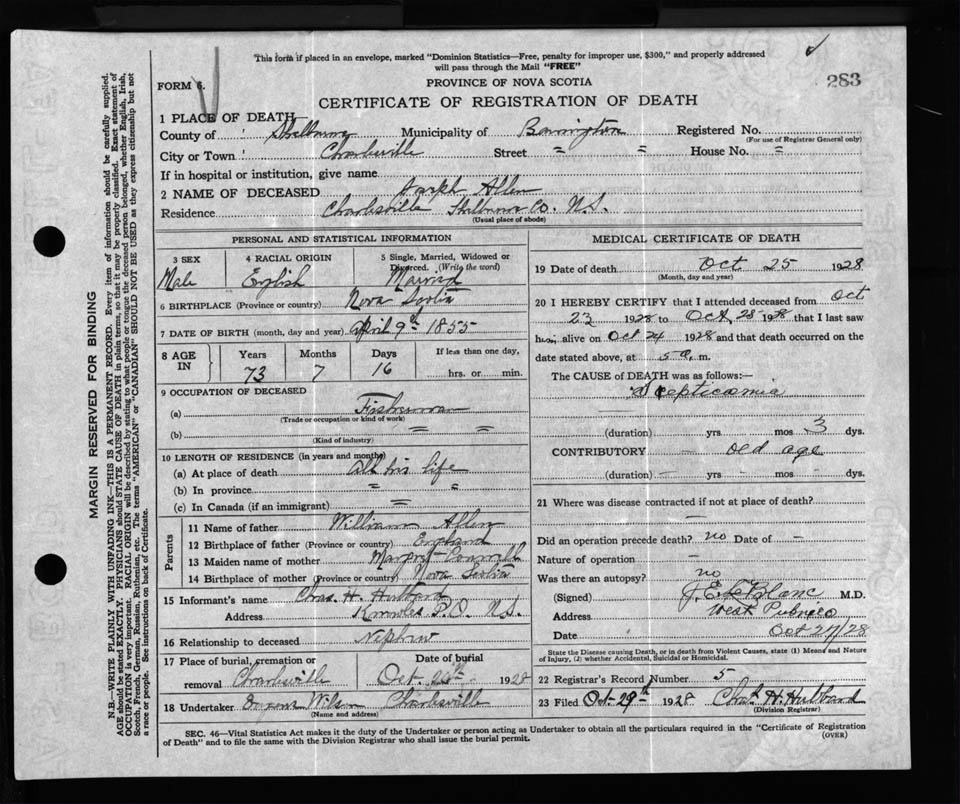 This form if placed in an envelope, marked "Dominion Statistics—Free, penalty for improper use, $300," and properly addressed
will pass through the Mail "FREE"
283
FORM 6.
PROVINCE OF NOVA SCOTIA
CERTIFICATE OF REGISTRATION OF DEATH
1 PLACE OF DEATH—
County of Shelburne Municipality of Barrington Registered No.
(For use of Registrar General only)
City or Town Charlesville Street = = House No. =
If in hospital or institution, give name
2 NAME OF DECEASED Joseph Allen
Residence Charlesville Shelburne Co. N.S.
(Usual place of abode)
PERSONAL AND STATISTICAL INFORMATION
3 SEX
Male
4 RACIAL ORIGIN
English
5 Single, Married, Widowed or
Divorced. (Write the word)
Married
6 BIRTHPLACE (Province or country) Nova Scotia
7 DATE OF BIRTH (month, day and year) April 9th 1855
8 AGE IN
Years Months Days If less than one day,
73 7 16 hrs. or min.
9 OCCUPATION OF DECEASED
(a) Fisherman
(Trade or occupation or kind of work)
(b) = =
(Kind of industry)
10 LENGTH OF RESIDENCE (in years and months)
(a) At place of death All his life
(b) In province = =
(c) In Canada (if an immigrant) =
Parents
11 Name of father William Allen
12 Birthplace of father (Province or country) England
13 Maiden name of mother
14 Birthplace of mother (Province or country) Nova Scotia
15 Informant's name Chas. H. Hubbard
Address Knowles P.O. N.S.
16 Relationship to deceased Nephew
17 Place of burial, cremation or Date of burial
removal Charlesville Oct. 1928
18 Undertaker Wilson Charlesville
(Name and address)
MEDICAL CERTIFICATE OF DEATH
19 Date of death Oct 25 1928
(Month, day and year)
20 I HEREBY CERTIFY that I attended deceased from Oct
23 1928 to Oct. 25 1928 that I last saw
him alive on Oct 24 1928 and that death occurred on the
date stated above, at 5 a. m.
The CAUSE of DEATH was as follows:—
Septicaemia
(duration) yrs mos 3 dys.
CONTRIBUTORY old age
(duration) — yrs - mos - dys.
21 Where was disease contracted if not at place of death?
—
Did an operation precede death? no Date of -
Nature of operation -
Was there an autopsy? no
(Signed) J. E. LeBlanc M.D.
Address West Pubnico
Date Oct 27/28
State the Disease causing Death, or in death from Violent Causes, state (1) Means and Nature
of Injury, (2) whether Accidental, Suicidal or Homicidal.
22 Registrar's Record Number 5
23 Filed Oct. 29th 1928 Chas. H. Hubbard
(Division Registrar)
SEC. 46—Vital Statistics Act makes it the duty of the Undertaker or person acting as Undertaker to obtain all the particulars required in the "Certificate of Registration
of Death" and to file the same with the Division Registrar who shall issue the burial permit.
(OVER)
MARGIN RESERVED FOR BINDING
N.B.—WRITE PLAINLY WITH UNFADING INK—THIS IS A PERMANENT RECORD. Every item of information should be carefully supplied.
AGE should be stated EXACTLY. PHYSICIANS should STATE CAUSE OF DEATH in plain terms, so that it may be properly classified. Exact statement of
OCCUPATION is very important. RACIAL ORIGIN will be described by stating to what people or tongue the deceased person belonged, whether English, Irish,
Scotch, French, German, Russian, Ruthenian, etc. The terms "AMERICAN" or "CANADIAN" SHOULD NOT BE USED as they express citizenship but not
a race or people. See instructions on back of Certificate.